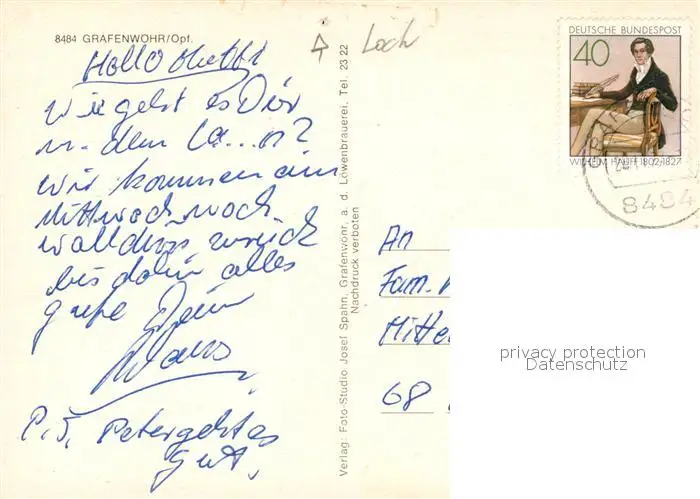 8484 GRAFENWÖHR/Opf.
Loch
Hallo
wie geht es Dir
m. dem La...n?
wir kommen am
Mittwoch nach
Walldorf zurück
bis dahin alles
gute Dein
P.S. Peter geht es
gut.
Verlag: Foto-Studio Josef Spahn, Grafenwöhr, a. d. Löwenbrauerei, Tel. 23 22
Nachdruck verboten
DEUTSCHE BUNDESPOST
40
WILHELM HAUFF 1802-1827
8484
An
Fam.
Mitte
68
privacy protection
Datenschutz